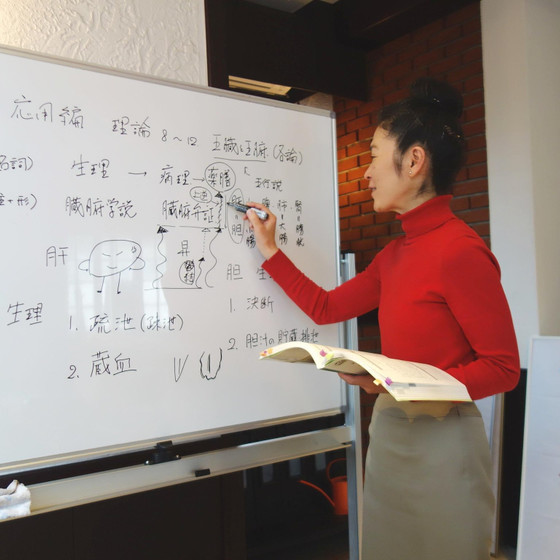 応用編 理論 8〜12 五臓と五腑(各論)
名詞) 生理 → 病理 → 薬膳
+形) 臓腑学説 臓腑弁証
五行説
肝
昇
胆 生
生理 1. 疏泄(疎泄)
1. 決断
2. 蔵血
2. 胆汁の貯蔵排泄